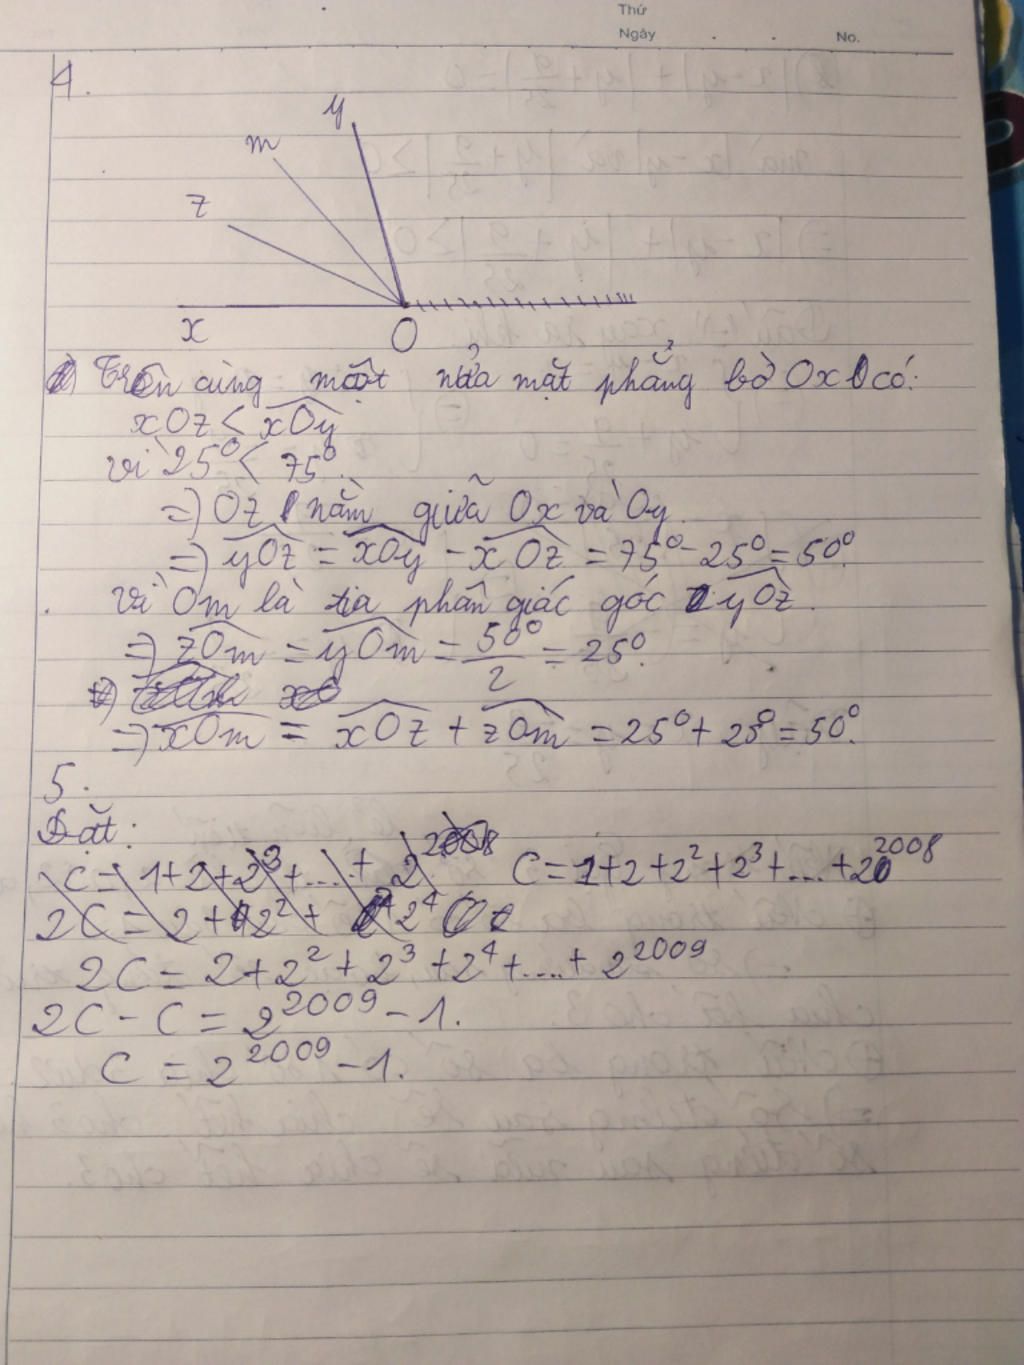 Thứ
Ngày . . No.
4.
y
m
z
x O
Trên cùng một nửa mặt phẳng bờ Ox có:
xOz < xOy
vì 25° < 75°.
=) Oz nằm giữa Ox và Oy.
=) yOz = xOy - xOz = 75° - 25° = 50°.
vì Om là tia phân giác góc yOz.
=) zOm = yOm = 50°/2 = 25°.
=) xOm = xOz + zOm = 25° + 25° = 50°.
5.
Đặt:
C = 1+2+2³+....+ 2 C = 1+2+2²+2³+....+2²⁰⁰⁸
2C = 2 + 2² + 2⁴
2C = 2+2²+2³+2⁴+....+ 2²⁰⁰⁹
2C - C = 2²⁰⁰⁹ - 1.
C = 2²⁰⁰⁹ - 1.